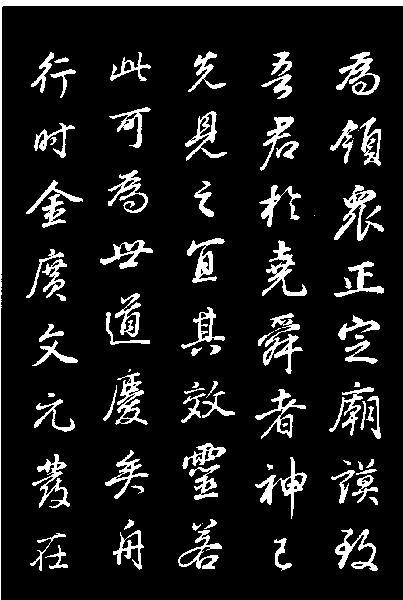 為領眾正定廟謨致
吾君於堯舜者神已
先見之宜其效靈若
此可為世道慶矣舟
行时金廣文元發在